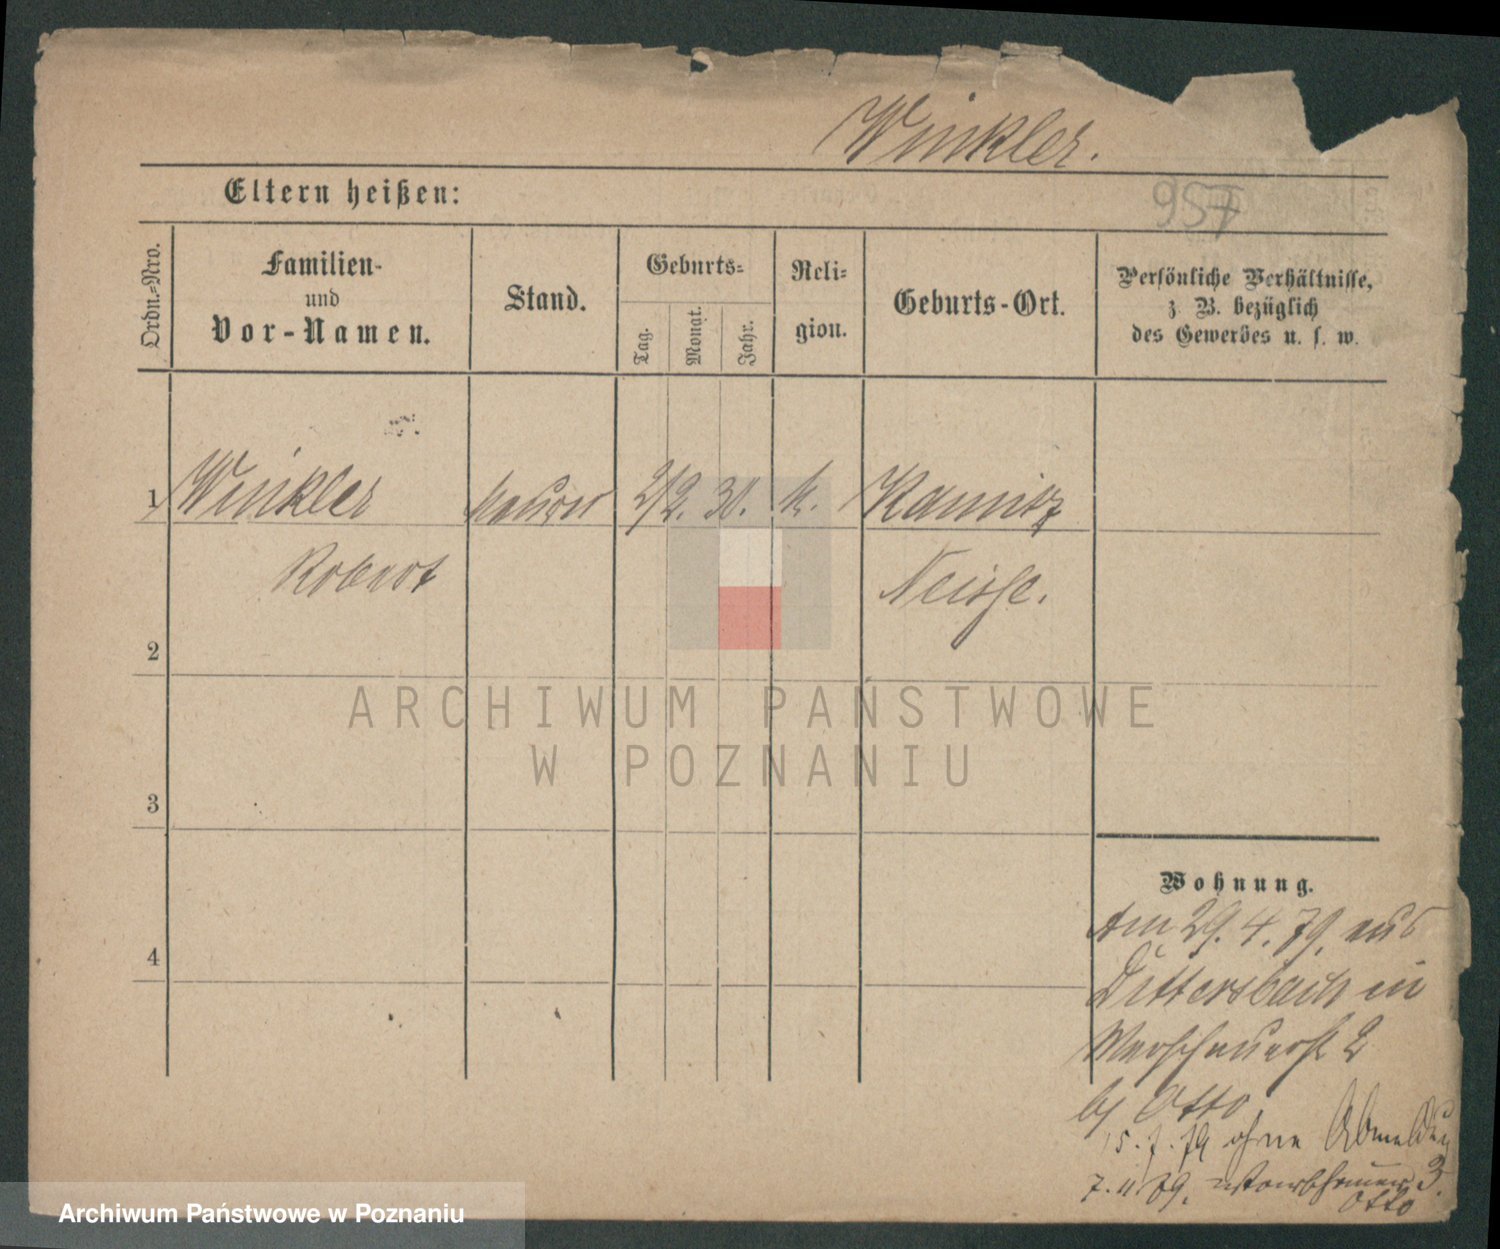 Winkler.
Eltern heißen:
957
Ordn.-Nro.
Familien-
und
Vor-Namen.
Stand.
Geburts-
Tag.
Monat.
Jahr.
Reli-
gion.
Geburts-Ort.
Persönliche Verhältnisse,
z. B. bezüglich
des Gewerbes u. s. w.
1 Winkler Maurer 2/2. 30. k. Kamitz
Robert Neisse.
2
3
4
Wohnung.
Am 29. 4. 79. aus
Dittersbach in
2
bj Otto
15. 7. 79 ohne Abmeldung
7. 11 79. 3.
Otto
ARCHIWUM PAŃSTWOWE
W POZNANIU
Archiwum Państwowe w Poznaniu